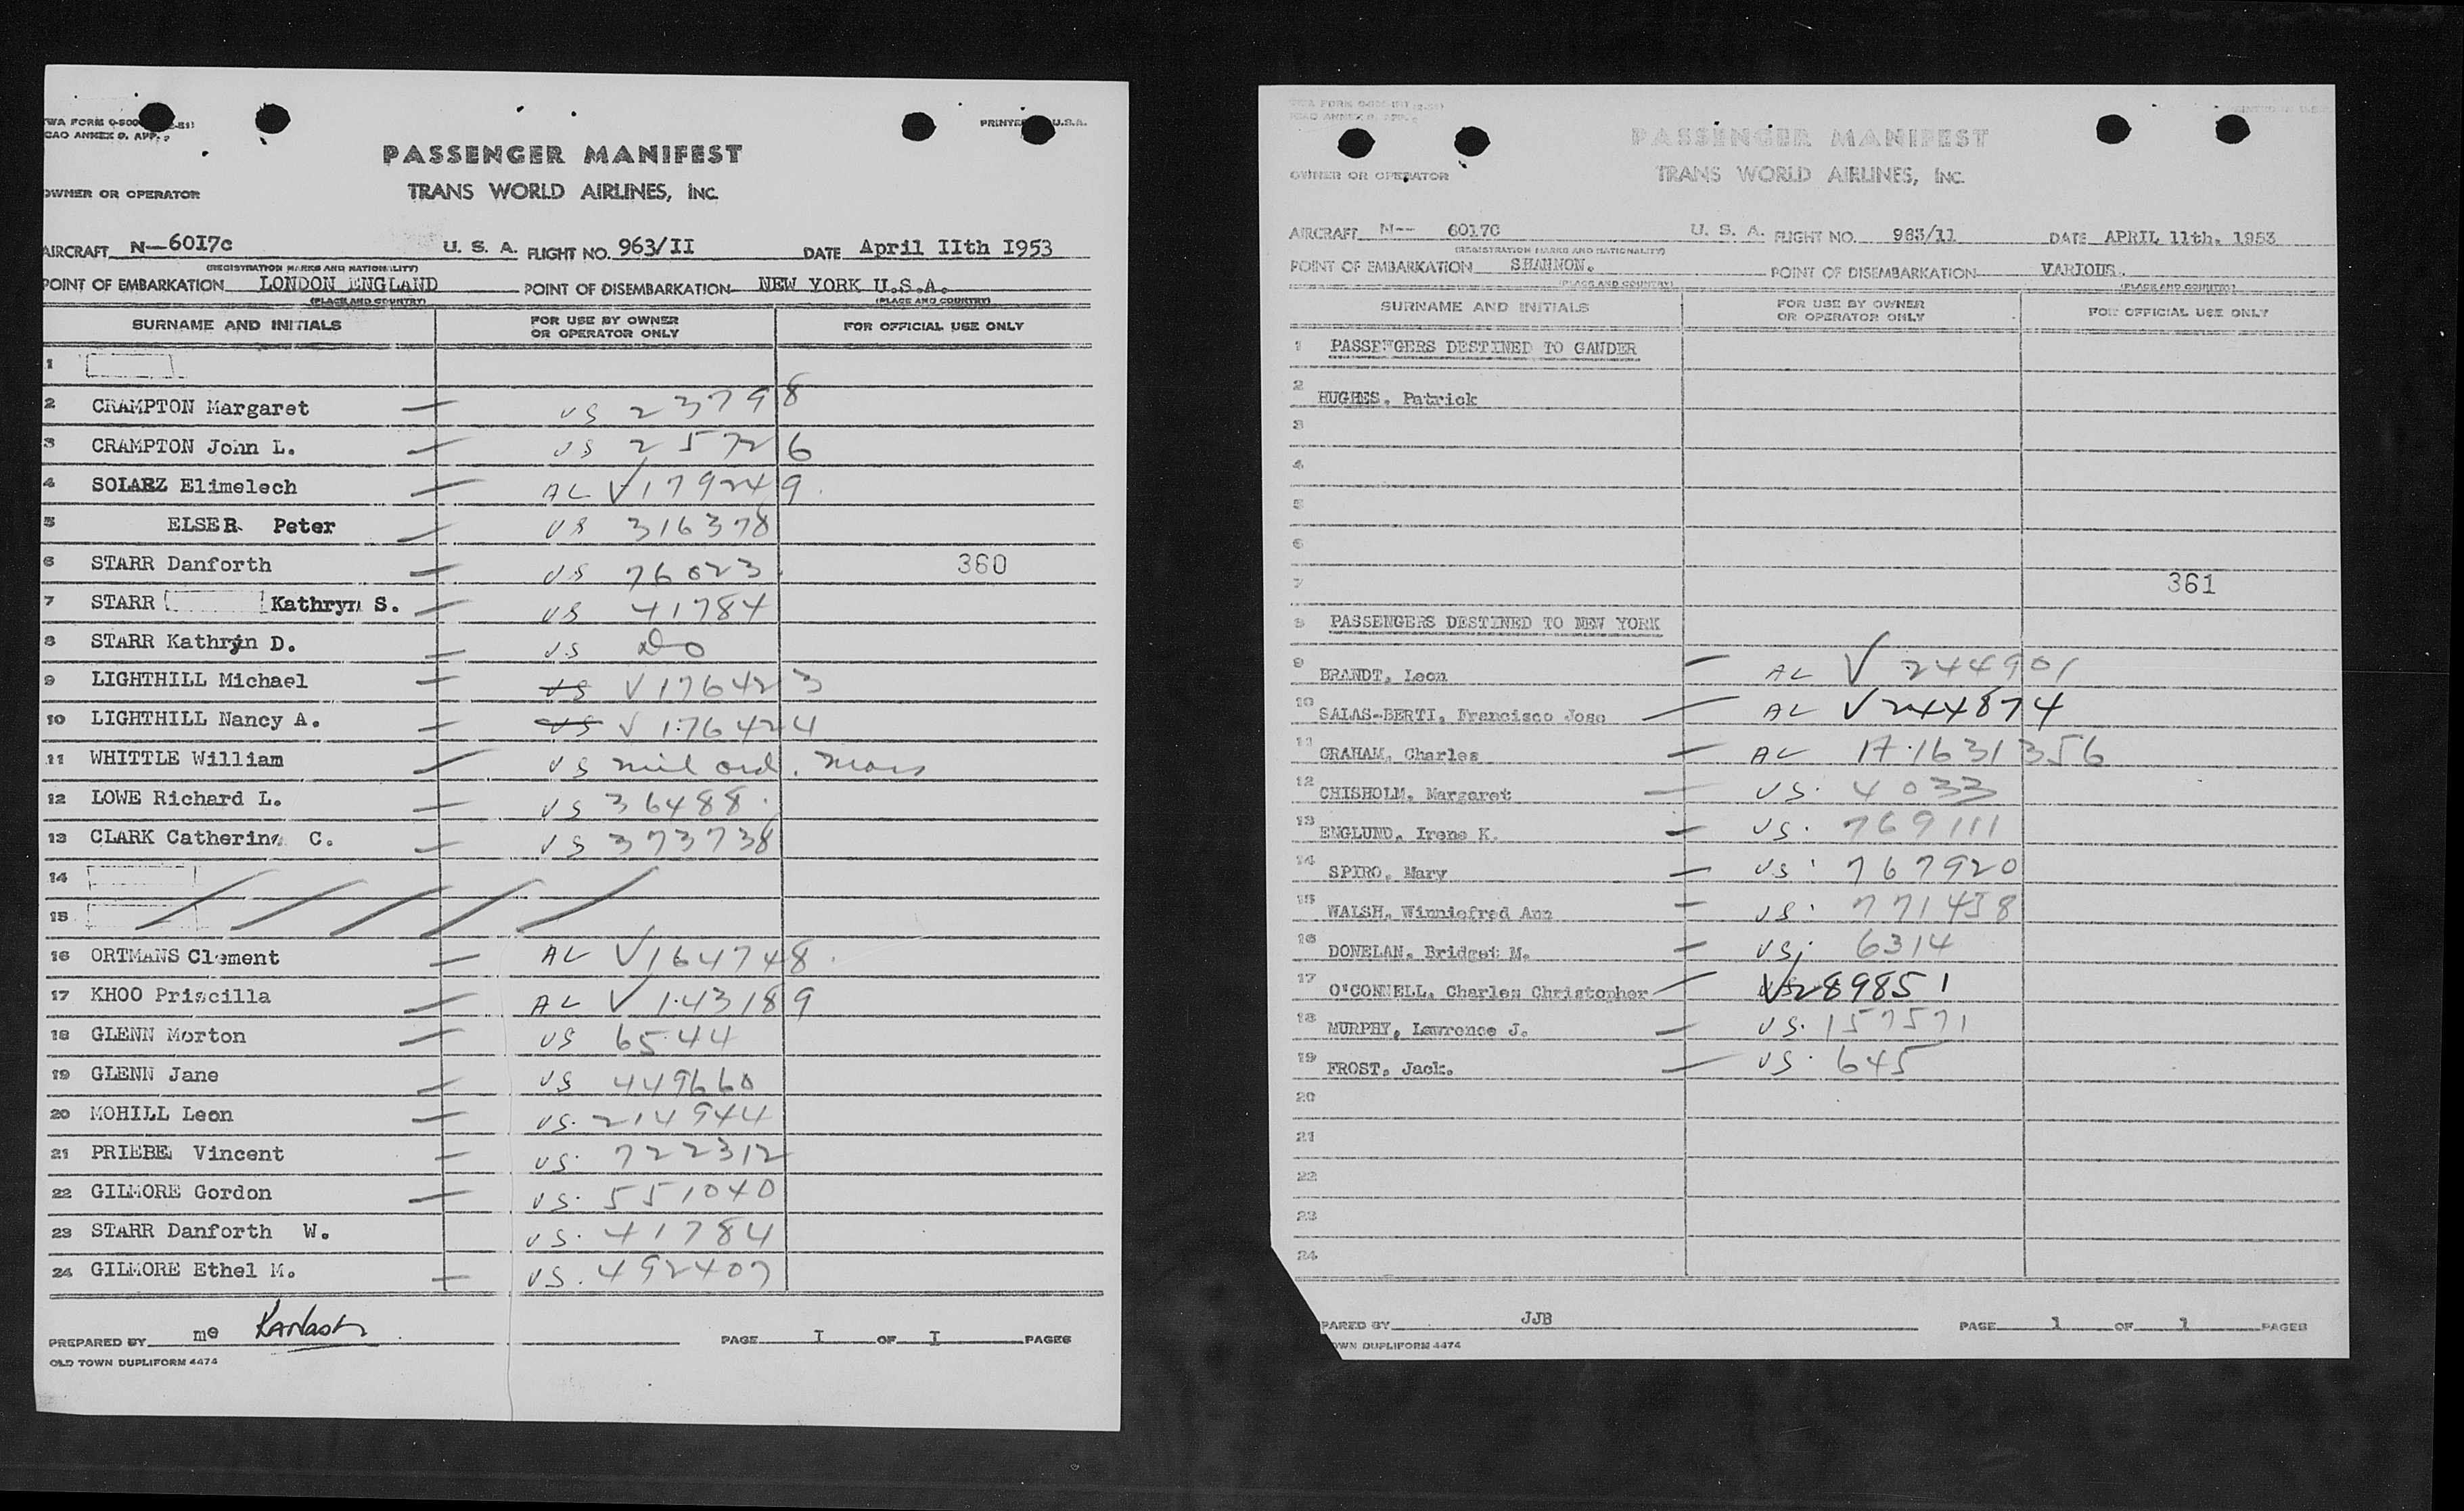 TWA FORM 0-800
ICAO ANNEX 9, APP. 2
PRINTED U.S.A.
PASSENGER MANIFEST
OWNER OR OPERATOR TRANS WORLD AIRLINES, INC.
AIRCRAFT N—6017c U. S. A. FLIGHT NO. 963/II DATE April IIth I953
(REGISTRATION MARKS AND NATIONALITY)
POINT OF EMBARKATION LONDON ENGLAND POINT OF DISEMBARKATION NEW YORK U.S.A.
(PLACE AND COUNTRY) (PLACE AND COUNTRY)
SURNAME AND INITIALS FOR USE BY OWNER OR OPERATOR ONLY FOR OFFICIAL USE ONLY
1
2 CRAMPTON Margaret — US 23798
3 CRAMPTON John L. — US 25726
4 SOLARZ Elimelech — AL V179249
5 ELSER Peter — US 316378
6 STARR Danforth — US 76023 360
7 STARR Kathryn S. — US 41784
8 STARR Kathryn D. — US Do
9 LIGHTHILL Michael — US V176423
10 LIGHTHILL Nancy A. — US V176424
11 WHITTLE William — US mil ord.
12 LOWE Richard L. — US 36488
13 CLARK Catherine C. — US 373738
14
15
16 ORTMANS Clement — AL V164748
17 KHOO Priscilla — AL V143189
18 GLENN Morton — US 6544
19 GLENN Jane — US 449660
20 MOHILL Leon — US. 214944
21 PRIEBE Vincent — US. 722312
22 GILMORE Gordon — US. 551040
23 STARR Danforth W. US. 41784
24 GILMORE Ethel M. — US. 492407
PREPARED BY me PAGE I OF I PAGES
OLD TOWN DUPLIFORM 4474
PASSENGER MANIFEST
OWNER OR OPERATOR TRANS WORLD AIRLINES, INC.
AIRCRAFT N-- 6017C U. S. A. FLIGHT NO. 963/11 DATE APRIL 11th. 1953
(REGISTRATION MARKS AND NATIONALITY)
POINT OF EMBARKATION SHANNON. POINT OF DISEMBARKATION VARIOUS.
(PLACE AND COUNTRY) (PLACE AND COUNTRY)
SURNAME AND INITIALS FOR USE BY OWNER OR OPERATOR ONLY FOR OFFICIAL USE ONLY
1 PASSENGERS DESTINED TO GANDER
2 HUGHES, Patrick
3
4
5
6
7 361
8 PASSENGERS DESTINED TO NEW YORK
9 BRANDT, Leon — AL V 244901
10 SALAS-BERTI, Francisco Jose — AL V244874
11 GRAHAM, Charles — AL 17.1631356
12 CHISHOLM, Margaret — US. 4033
13 ENGLUND, Irene K. — US. 769111
14 SPIRO, Mary — US. 767920
15 WALSH, Winniefred Ann — US. 771438
16 DONELAN, Bridget M. — US. 6314
17 O'CONNELL, Charles Christopher — V289851
18 MURPHY, Lawrence J. — US. 157571
19 FROST, Jack. — US. 645
20
21
22
23
24
PARED BY JJB PAGE 1 OF 1 PAGES
OWN DUPLIFORM 4474